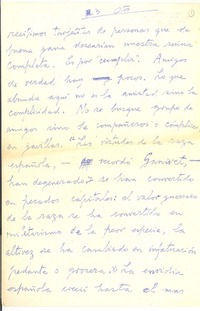 3 Oto
1
recibimos tarjetas de personas que de
buena gana desearían nuestra ruina
completa. Es por cumplir. Amigos
de verdad hay pocos. Lo que
abunda aquí no es la amistad sino la
complicidad. No se busque grupo de
amigos sino de compañeros o cómplices
en gavillas. Las virtudes de la raza
española, – recordó Ganivet, –
han degenerado; se han convertido
en pecados capitales: el valor guerrero
de la raza se ha convertido en
militarismo de la peor especie, la
altivez se ha cambiado en infatuación
pedante o grosera, la envidia
española creció hasta el mas